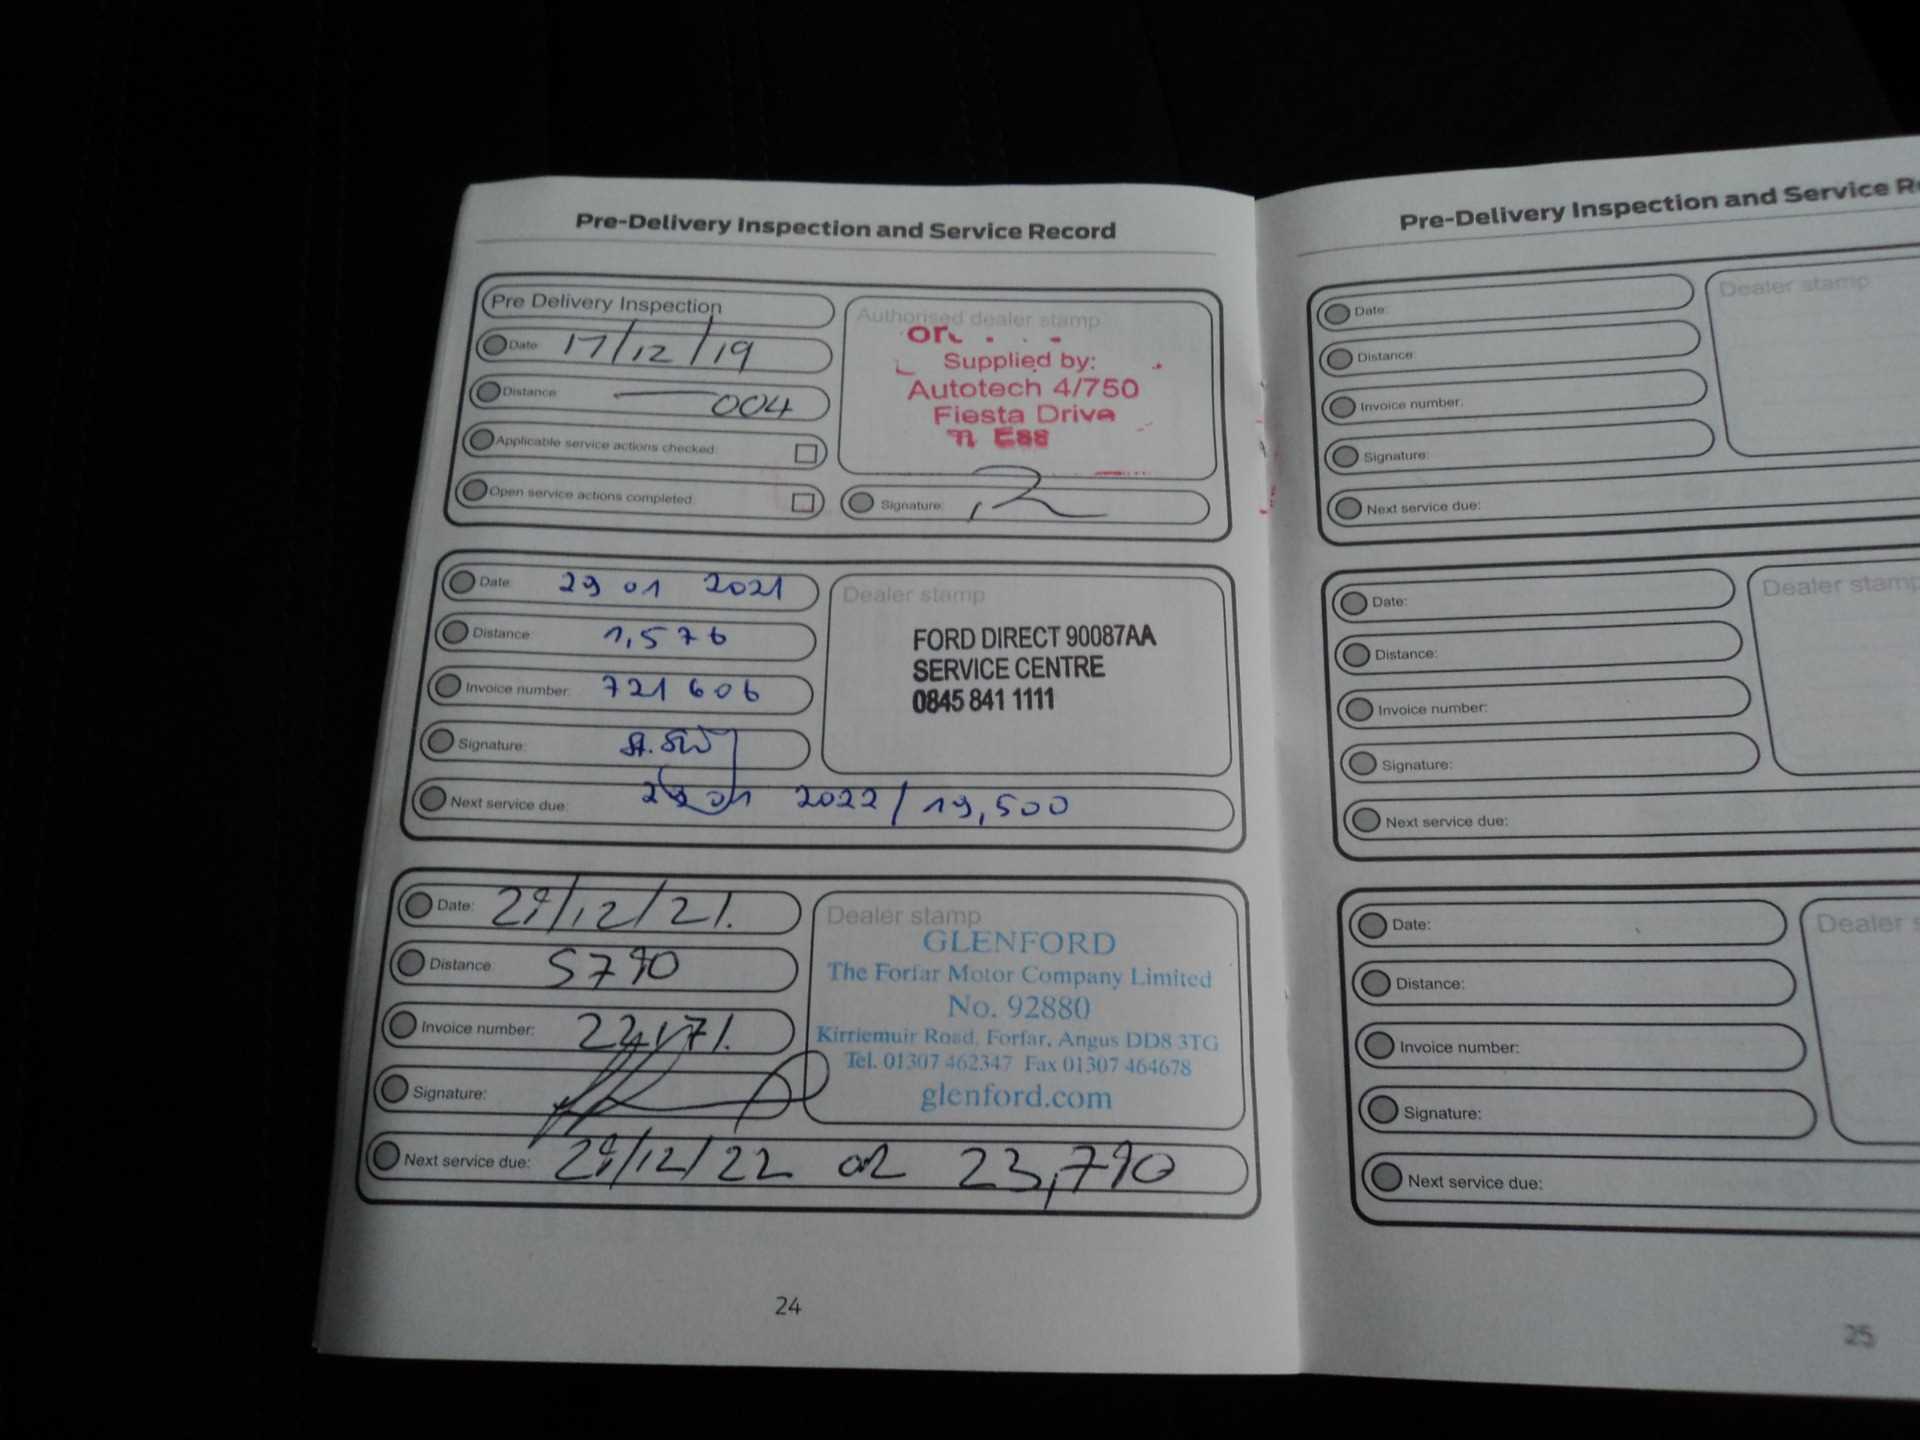 Pre-Delivery Inspection and Service Record
Pre Delivery Inspection
Date: 17/12/19
Distance 004
Applicable service actions checked:
Open service actions completed:
Authorised dealer stamp
Supplied by:
Autotech 4/750
Fiesta Drive
Signature:
Date: 29 01 2021
Distance: 1,576
Invoice number: 721606
Signature:
Next service due: 29 01 2022 / 19,500
Dealer stamp
FORD DIRECT 90087AA
SERVICE CENTRE
0845 841 1111
Date: 29/12/21.
Distance 5790
Invoice number:
Signature:
Next service due: 29/12/22 or 23,790
Dealer stamp
GLENFORD
The Forfar Motor Company Limited
No. 92880
Kirriemuir Road, Forfar, Angus DD8 3TG
Tel. 01307 462347 Fax 01307 464678
glenford.com
24
Pre-Delivery Inspection and Service
Date:
Distance:
Invoice number:
Signature:
Next service due:
Dealer stamp
Date:
Distance:
Invoice number:
Signature:
Next service due:
Dealer stamp
Date:
Distance:
Invoice number:
Signature:
Next service due:
Dealer
25